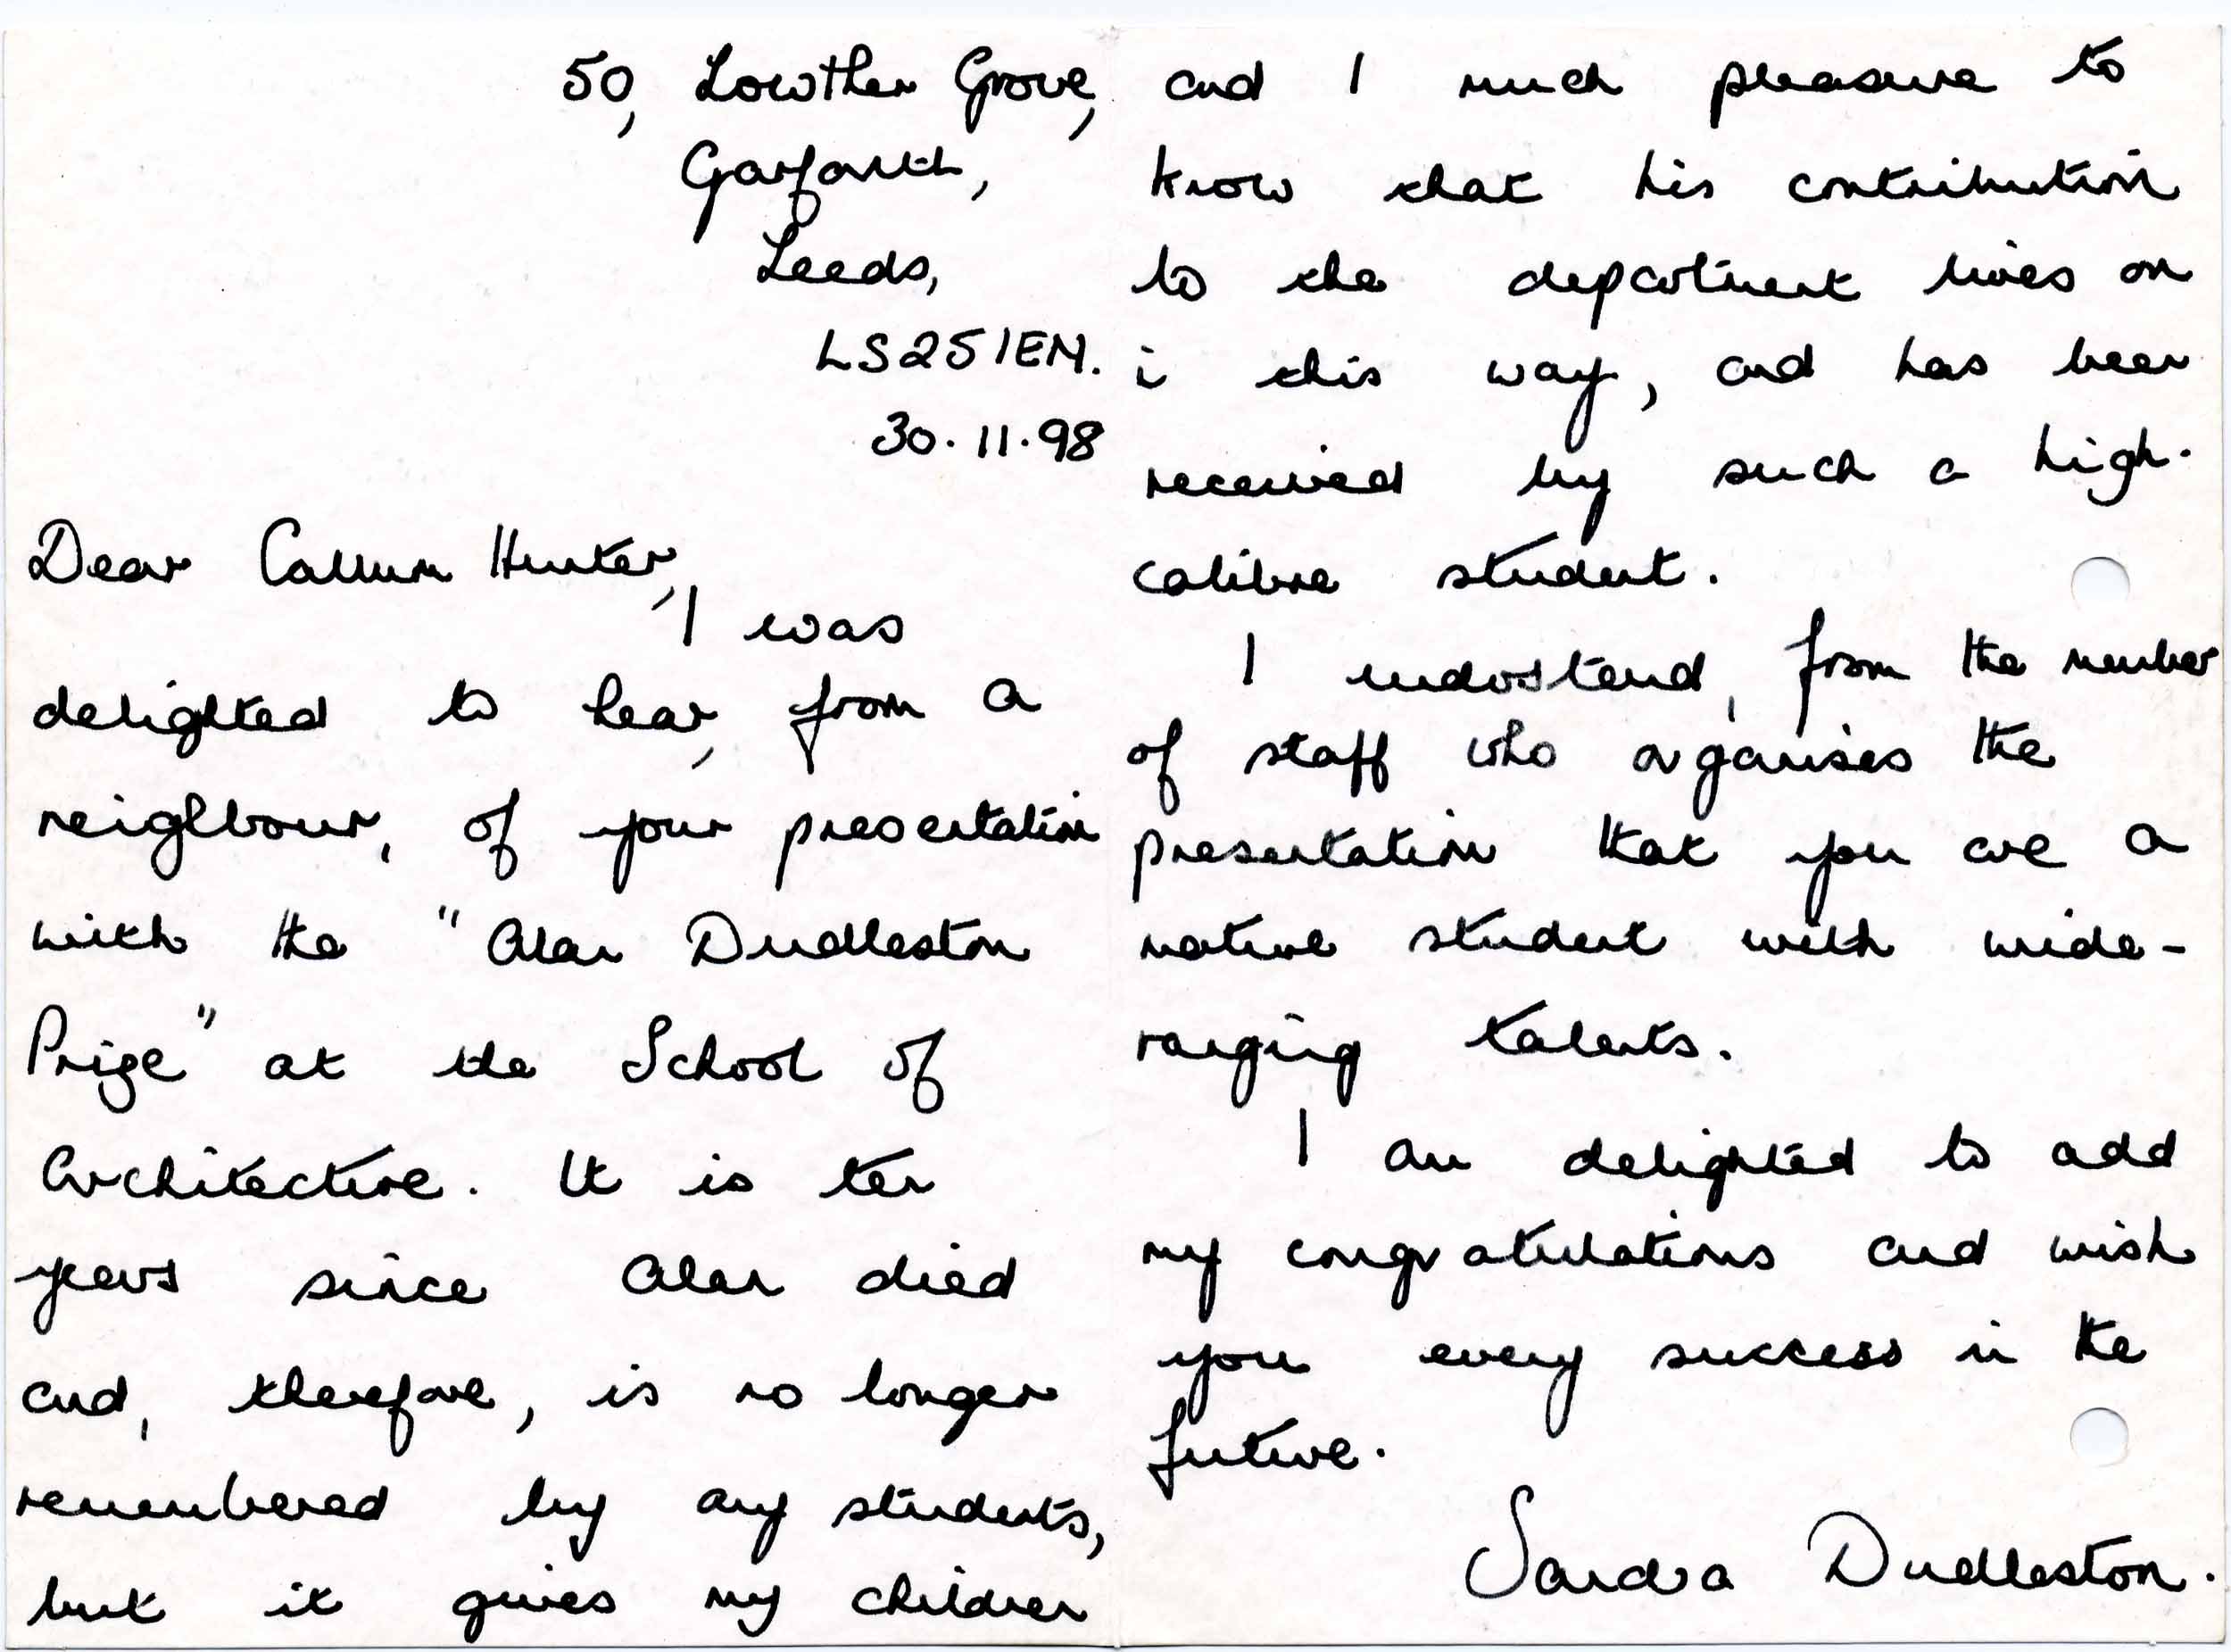 50, Lowther Grove,
Garforth,
Leeds,
LS25 1EM.
30.11.98
Dear Callum Hunter,
I was
delighted to hear, from a
neighbour, of your presentation
with the "Alan Dudleston
Prize" at the School of
Architecture. It is ten
years since Alan died
and, therefore, is no longer
remembered by any students,
but it gives my children
and I much pleasure to
know that his contribution
to the department lives on
in this way, and has been
received by such a high-
calibre student.
I understand, from the member
of staff who organises the
presentation that you are a
mature student with wide-
ranging talents.
I am delighted to add
my congratulations and wish
you every success in the
future.
Sandra Dudleston.